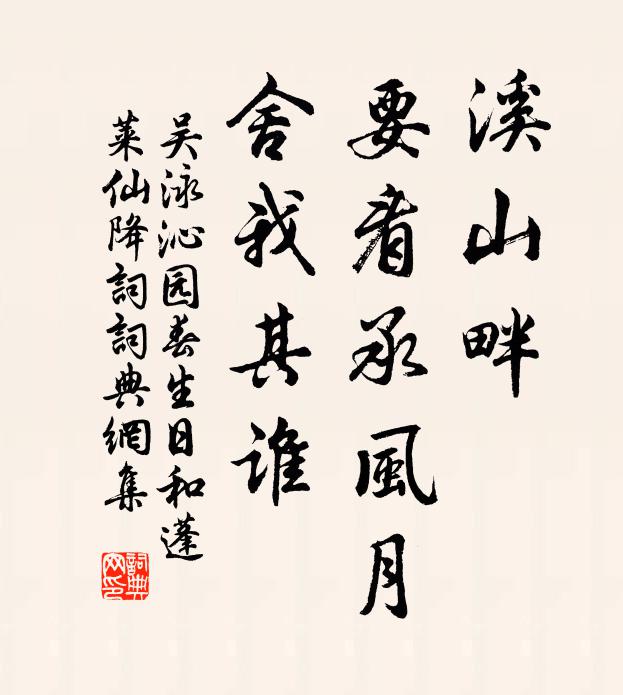 溪山畔
要看承風月
舍我其誰
吴泳沁园春生日和蓬
萊仙降詞詞典網集
詞典网印